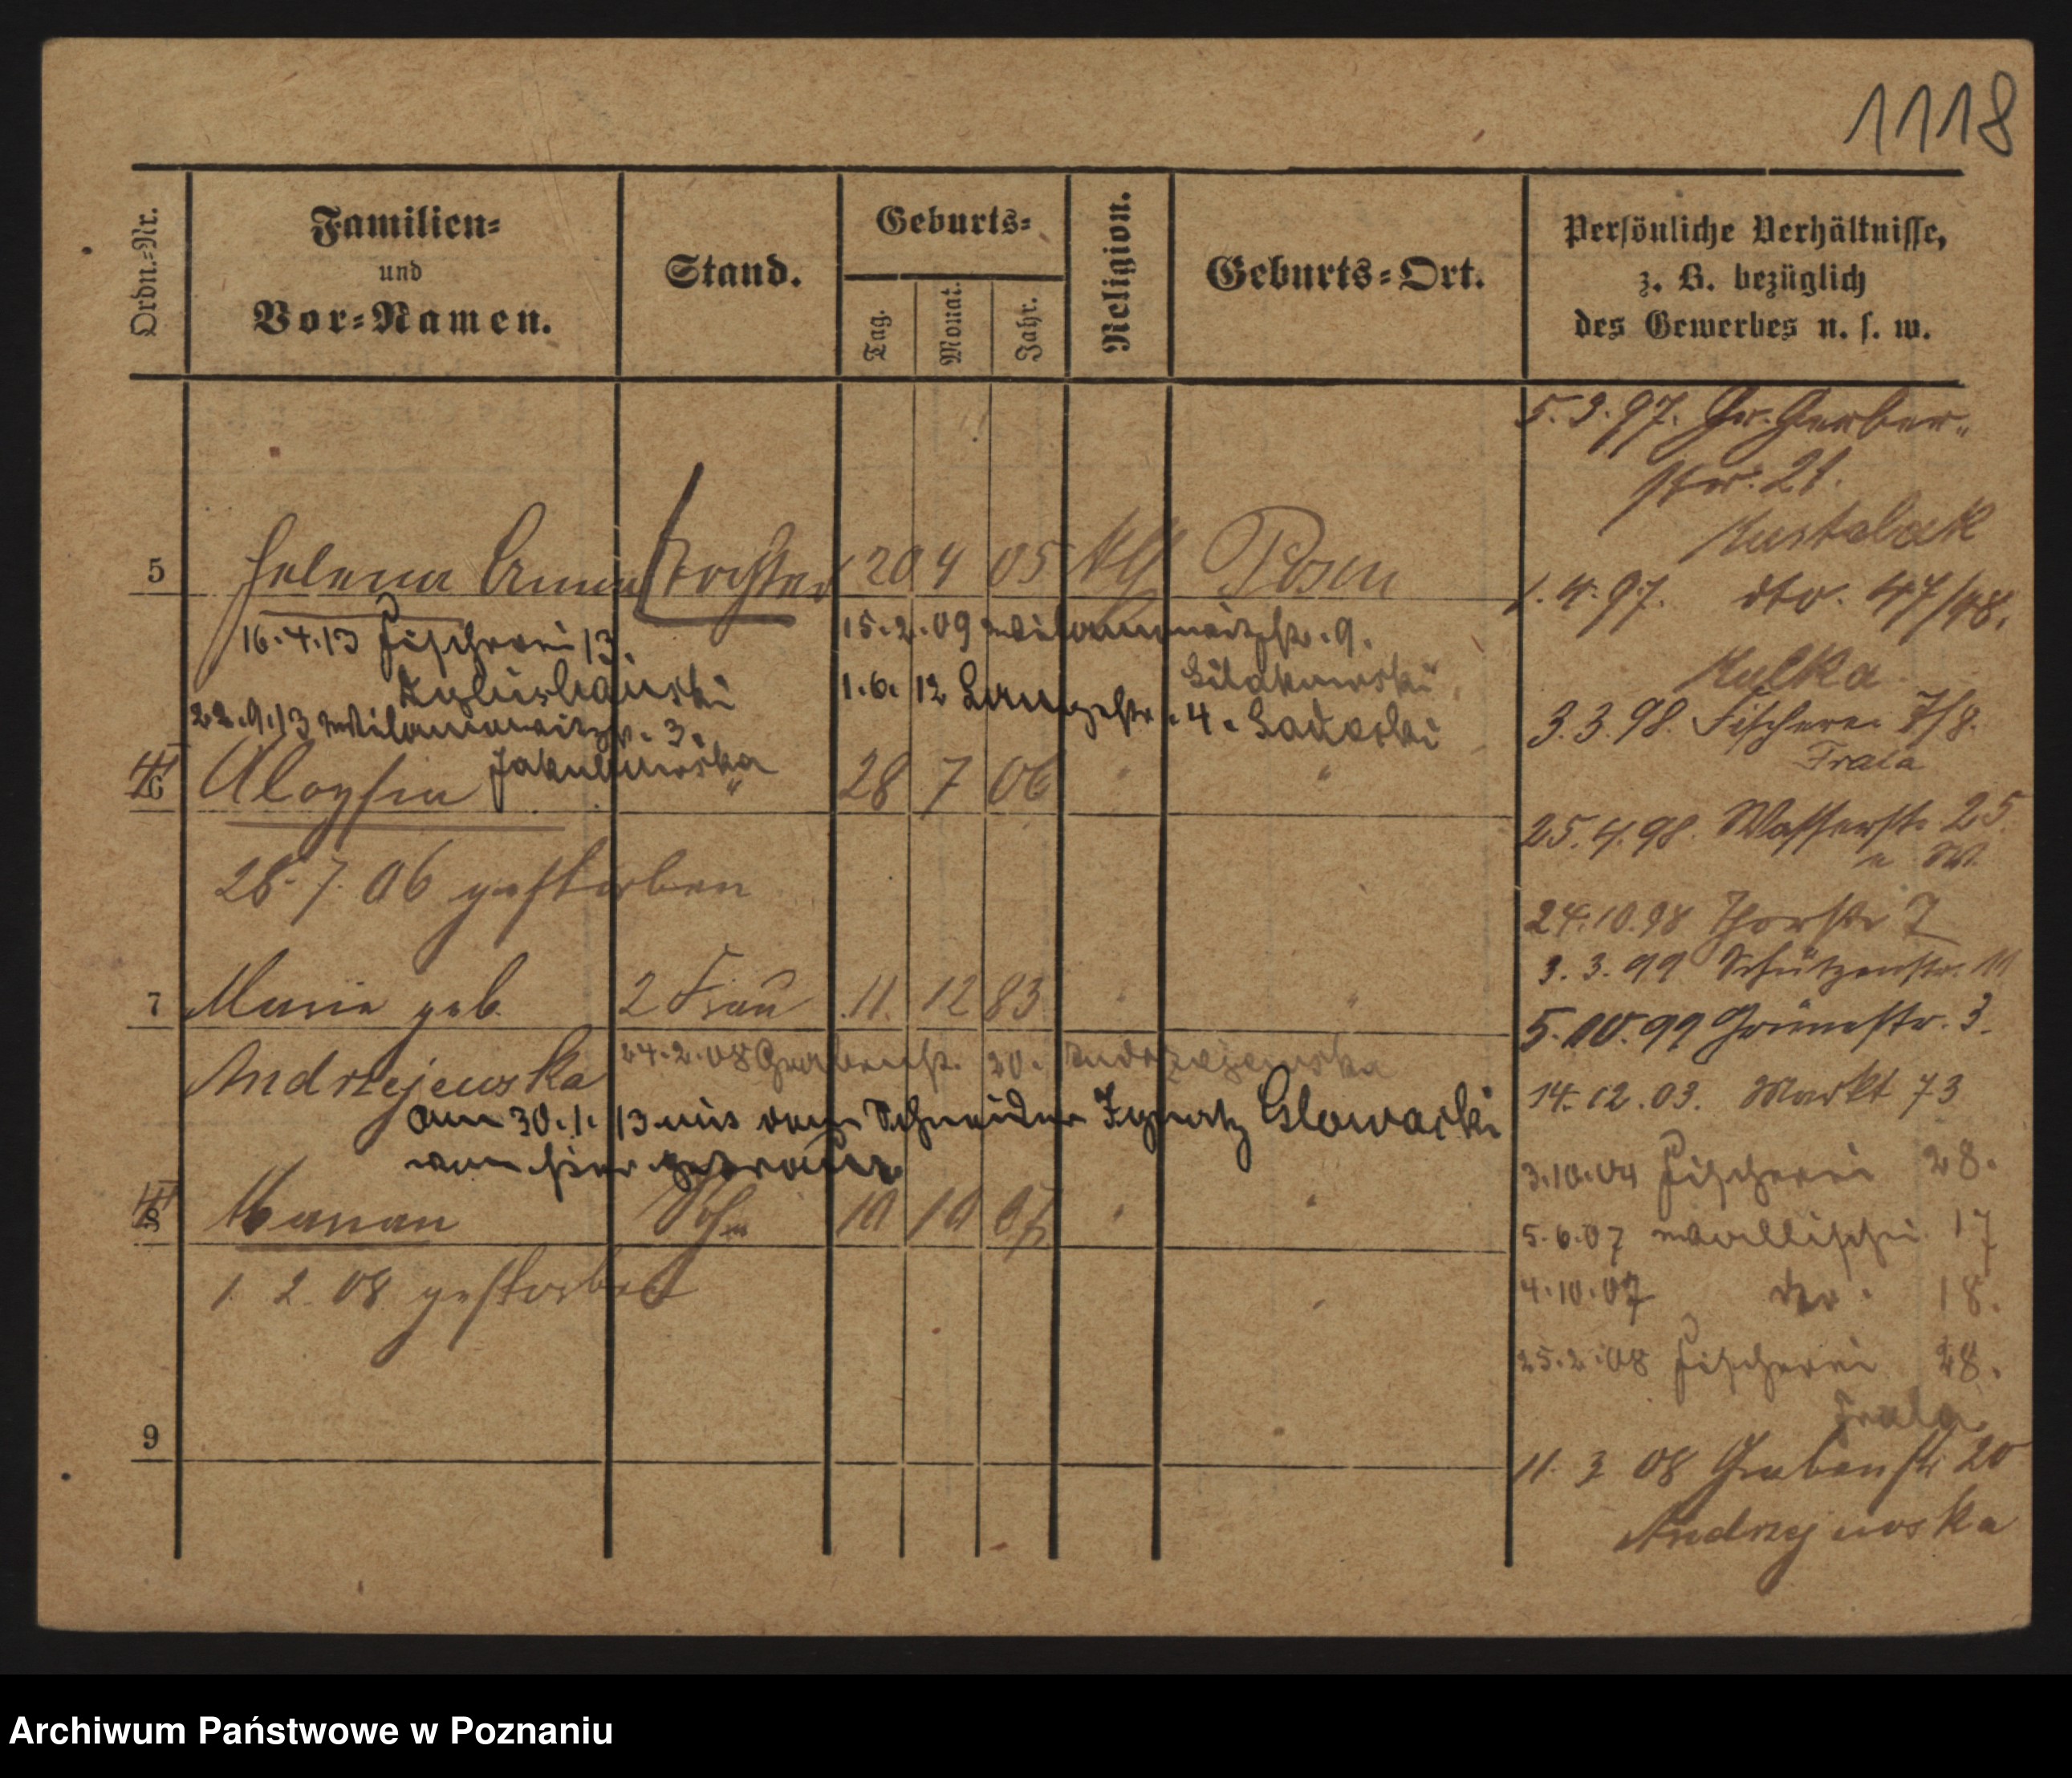 1118
Ordn.-Nr.
Familien-
und
Vor-Namen.
Stand.
Geburts-
Tag.
Monat.
Jahr.
Religion.
Geburts-Ort.
Persönliche Verhältnisse,
z. B. bezüglich
des Gewerbes u. s. w.
5 Helena Anna Tochter 20 4 05 Posen
16.4.13 Fischerei 13
15.2.09
1.6.12 Langestr. 4.
22.9.13 3.
Jakubowska
6 Aloysia " 28 7 06 " "
28.7.06 gestorben
7 Maria geb. 2 Frau 11. 12 83 " "
Andrzejewska
24.2.08 Grabenstr. 20. Andrzejewska
am 30.1.13 mit dem Schneider Ignatz Glowacki
von hier getraut.
8 Marian Sohn 10 10 07 " "
1. 2. 08 gestorben
9
5.3.97. Gr. Gerber-
str. 21.
1.4.97. dto. 47/48.
Kulka
3.3.98. Fischerei 7/8.
Frala
25.4.98. Wasserstr. 25
24.10.98 Thorstr
3.3.99 Schützenstr. 11
5.10.99 Grünestr. 3.
14.12.03. Markt 73
3.10.04 Fischerei 28.
5.6.07 Wallischei 17
4.10.07 dto. 18.
25.2.08 Fischerei 28.
Frala
11. 3 08 Grabenstr 20
Andrzejewska
Archiwum Państwowe w Poznaniu